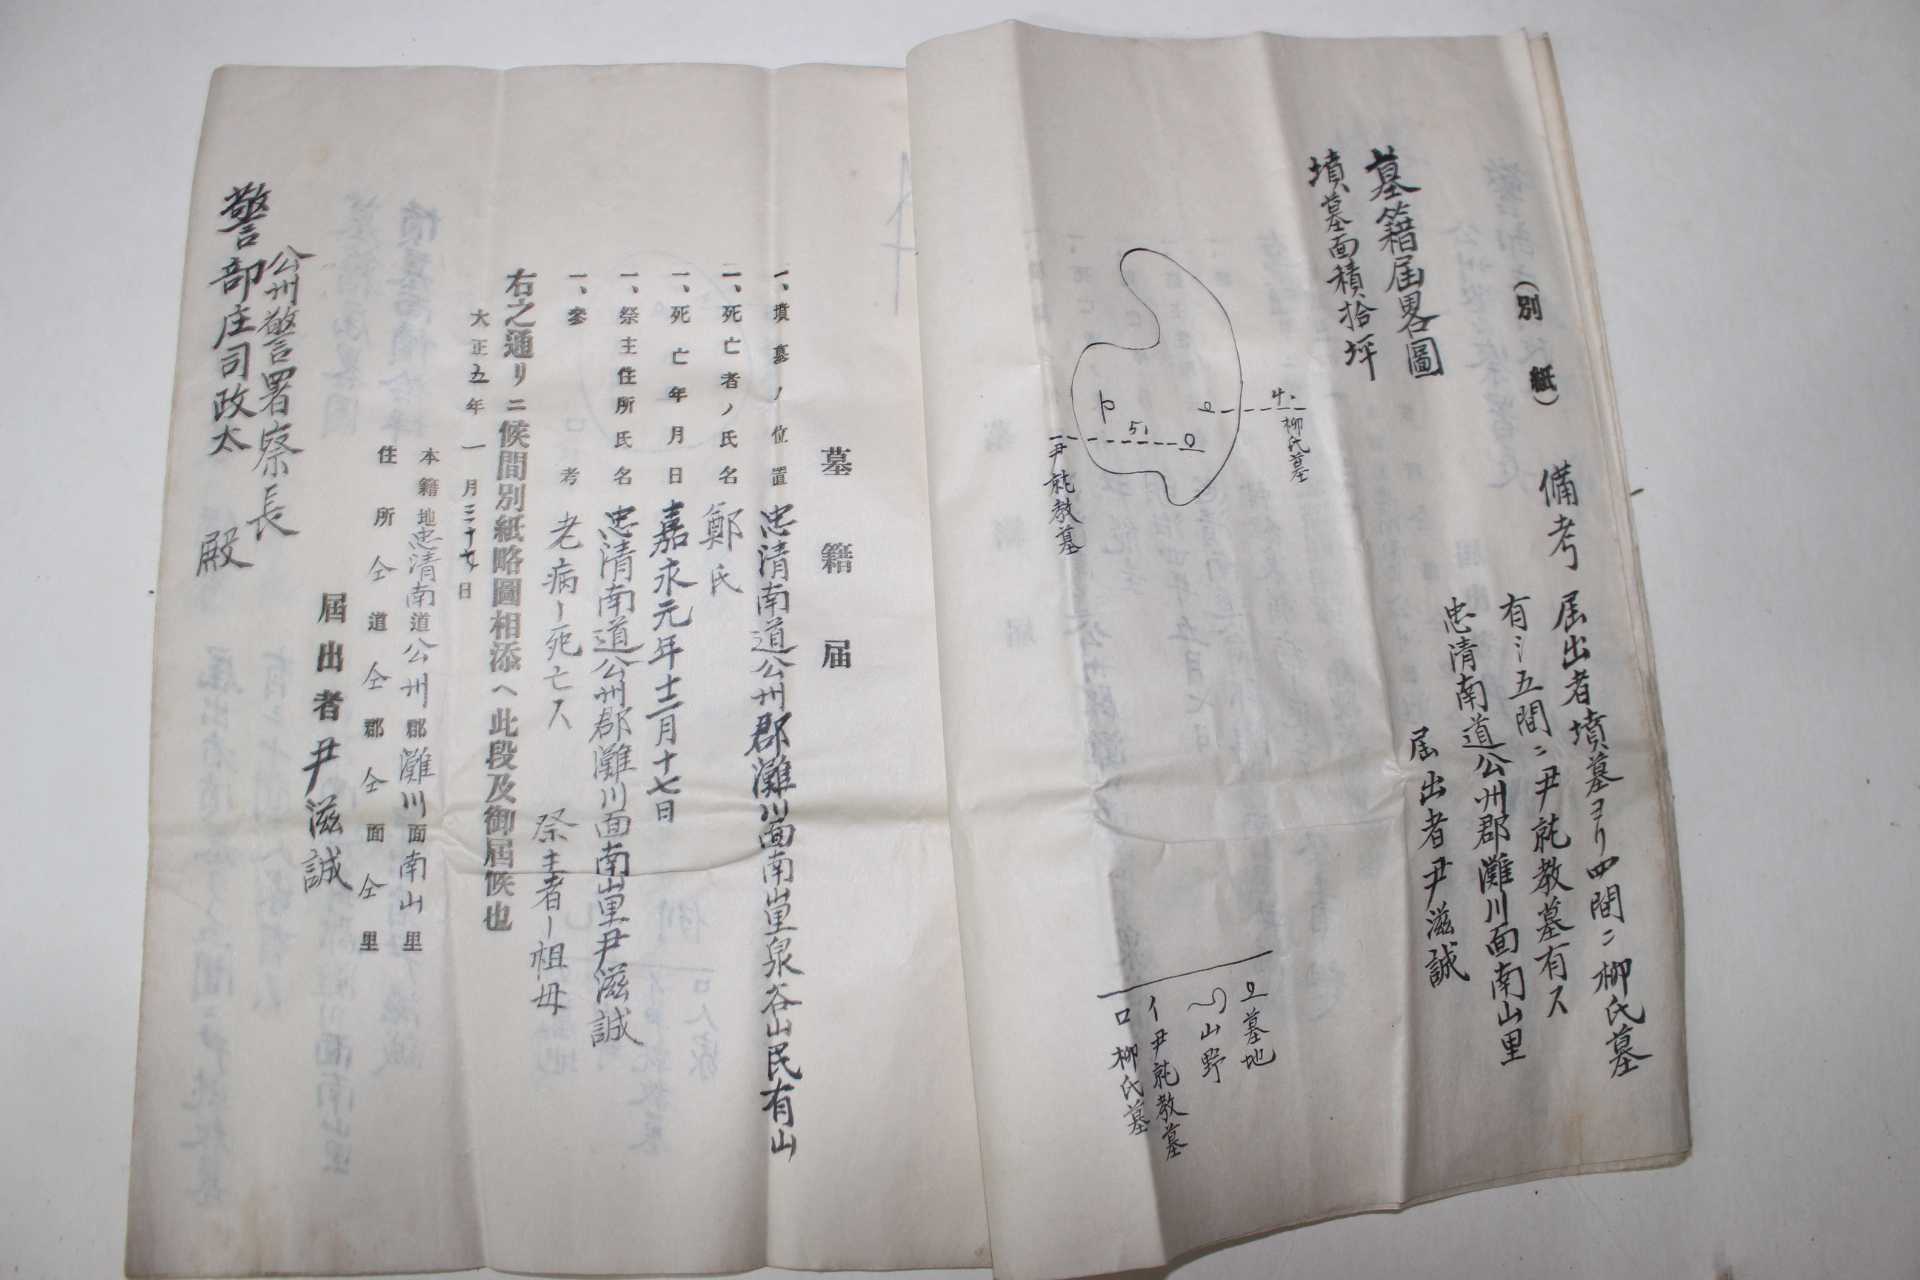 (別紙)
備考
届出者墳墓ヨリ四間ニ柳氏墓
有シ五間ニ尹㲽教墓有ス
忠清南道公州郡灘川面南山里
届出者尹滋誠
墓籍届畧圖
墳墓面積拾坪
4、
柳氏墓
5、
尹㲽教墓
墓地
山野
イ尹㲽教墓
ロ柳氏墓
墓籍届
一、墳墓ノ位置 忠清南道公州郡灘川面南山里泉谷山民有山
一、死亡者ノ氏名 鄭氏
一、死亡年月日 嘉永元年十二月十七日
一、祭主住所氏名 忠清南道公州郡灘川面南山里尹滋誠
一、參考 老病ー死亡ス 祭主者ー祖母
右之通リニ候間別紙略圖相添ヘ此段及御届候也
大正五年一月三十七日
本籍地忠清南道公州郡灘川面南山里
住所仝道仝郡仝面仝里
届出者尹滋誠
公州警察署長
警部庄司政太殿